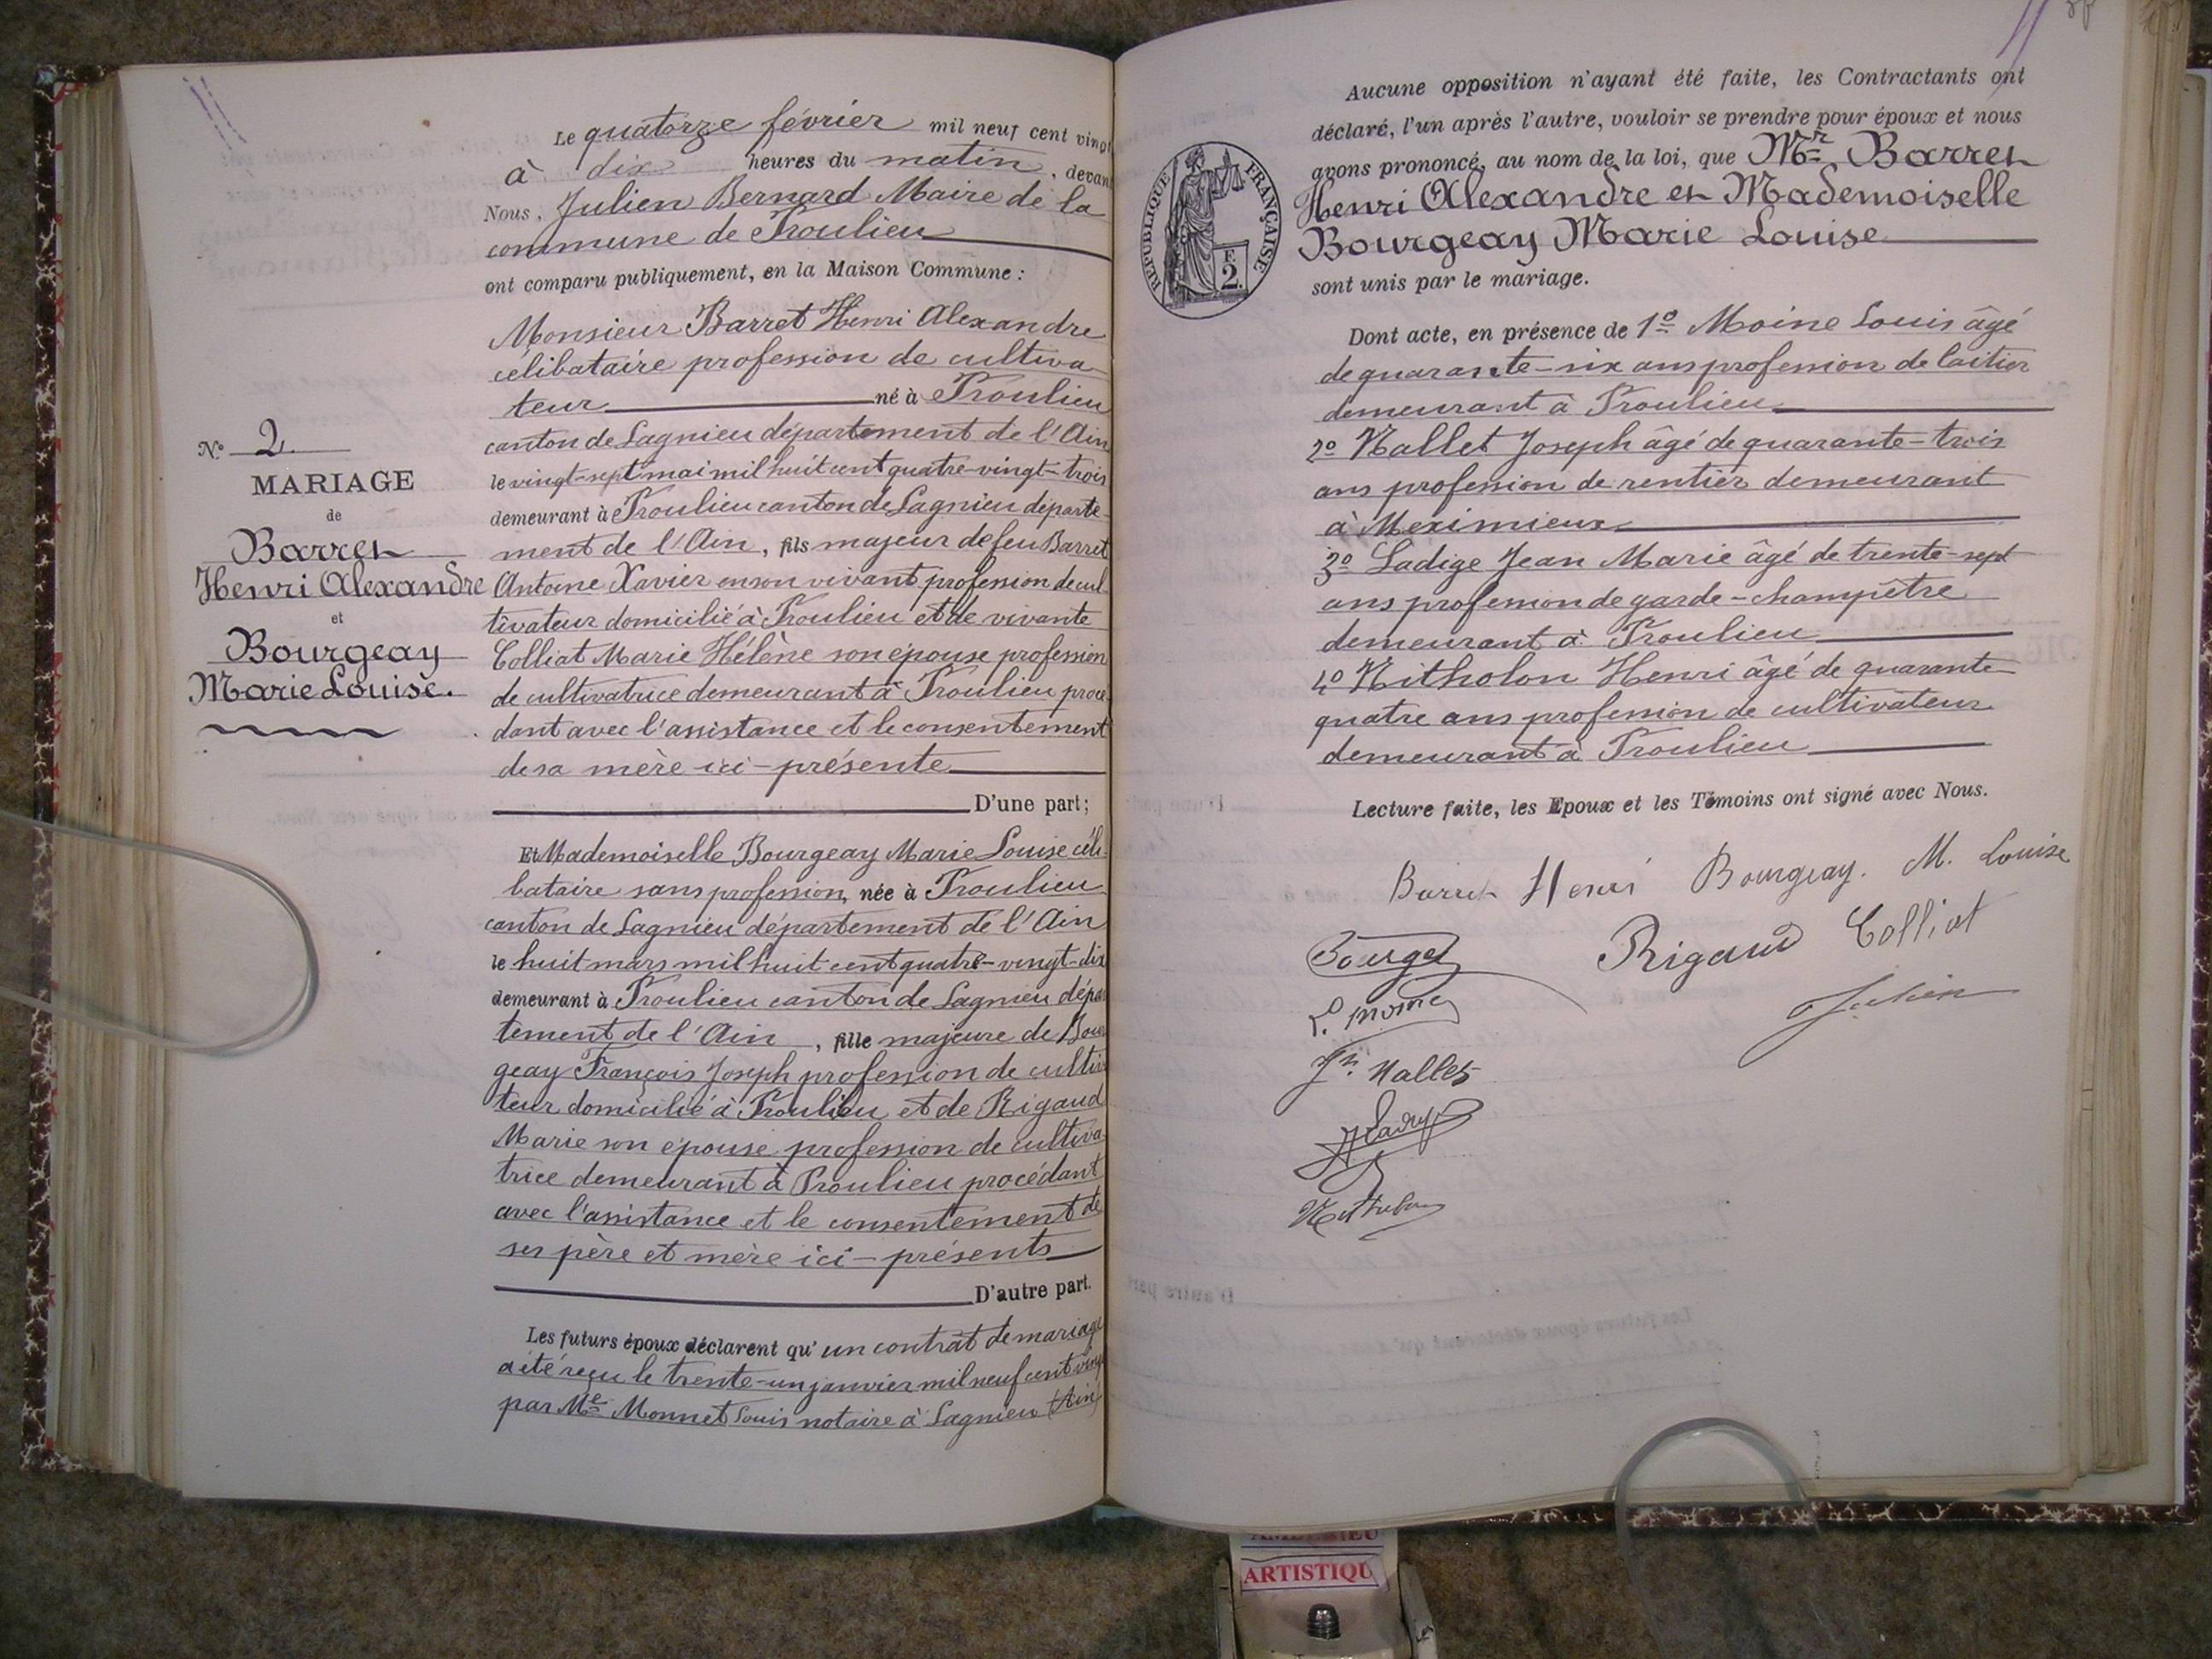 Le quatorze février mil neuf cent vingt
à dix heures du matin, devant
Nous, Julien Bernard Maire de la
commune de Proulieu
ont comparu publiquement, en la Maison Commune :
Monsieur Barret Henri Alexandre
célibataire profession de cultiva
teur né à Proulieu
canton de Lagnieu département de l'Ain
le vingt-sept mai mil huit cent quatre-vingt-trois
demeurant à Proulieu canton de Lagnieu départe-
ment de l'Ain, fils majeur de feu Barret
Antoine Xavier en son vivant profession de cul-
tivateur domicilié à Proulieu et de vivante
Colliat Marie Hélène son épouse profession
de cultivatrice demeurant à Proulieu procé-
dant avec l'assistance et le consentement
de sa mère ici-présente
D'une part;
Et Mademoiselle Bourgeay Marie Louise céli-
bataire sans profession, née à Proulieu
canton de Lagnieu département de l'Ain
le huit mars mil huit cent quatre-vingt-dix
demeurant à Proulieu canton de Lagnieu dépar
tement de l'Ain, fille majeure de Bour
geay François Joseph profession de cultiva
teur domicilié à Proulieu et de Rigaud
Marie son épouse profession de cultiva
trice demeurant à Proulieu procédant
avec l'assistance et le consentement de
ses père et mère ici-présents
D'autre part.
Les futurs époux déclarent qu'un contrat de mariage
a été reçu le trente-un janvier mil neuf cent vingt
par Me Monnet Louis notaire à Lagnieu (Ain)
N° 2
MARIAGE
de
Barret
Henri Alexandre
et
Bourgeay
Marie Louise.
Aucune opposition n'ayant été faite, les Contractants ont
déclaré, l'un après l'autre, vouloir se prendre pour époux et nous
avons prononcé, au nom de la loi, que Mr Barret
Henri Alexandre et Mademoiselle
Bourgeay Marie Louise
sont unis par le mariage.
RÉPUBLIQUE FRANÇAISE
F.
2.
Dont acte, en présence de 1° Moine Louis âgé
de quarante-six ans profession de laitier
demeurant à Proulieu
2° Nallet Joseph âgé de quarante-trois
ans profession de rentier demeurant
à Meximieux
3° Ladige Jean Marie âgé de trente-sept
ans profession de garde-champêtre
demeurant à Proulieu
4° Nitholon Henri âgé de quarante
quatre ans profession de cultivateur
demeurant à Proulieu
Lecture faite, les Epoux et les Témoins ont signé avec Nous.
Barret Henri Bourgeay. M. Louise
Rigaud Colliat
L. Moine
Julien
Jh. Nallet
ARTISTIQU